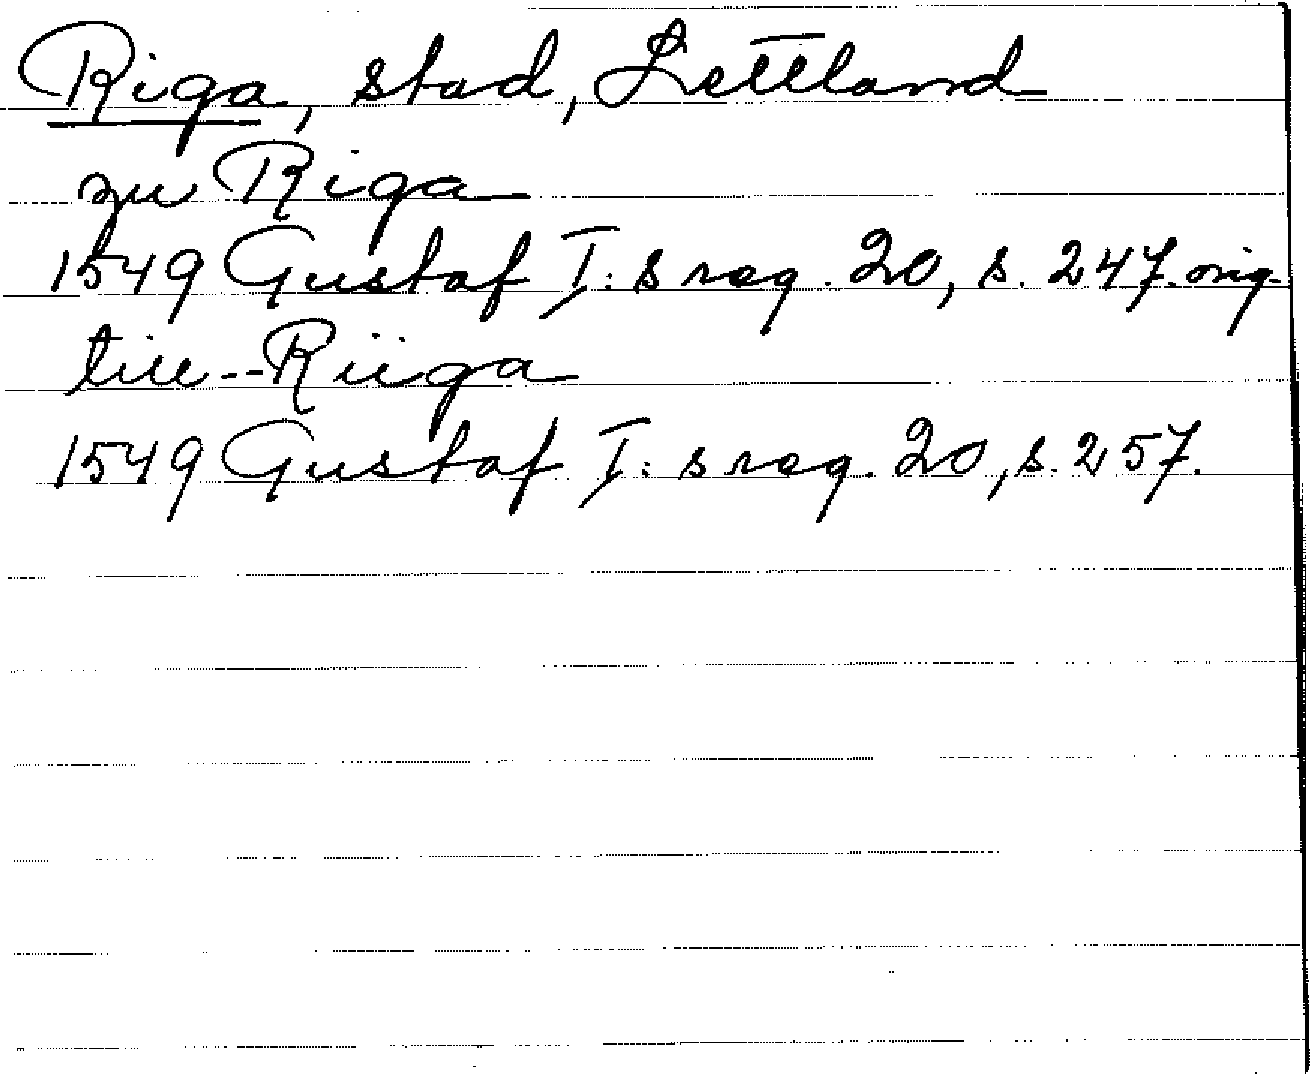 Riga, stad, Lettland
zu Riga
1549 Gustaf I:s reg. 20, s. 247. orig.
till -- Riiga
1549 Gustaf I:s reg. 20, s. 257.